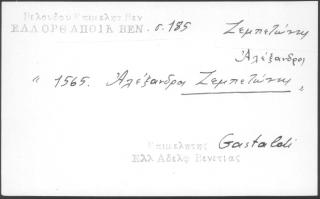 Βελούδου Επιμελητ Βεν
ΕΛΛ ΟΡΘ ΑΠΟΙΚ ΒΕΝ. σ. 185
Ζεμπετώνης
Ἀλέξανδρος
" 1565. Ἀλέξανδρος Ζεμπετώνης "
Επιμελητης Gastaldi
Ελλ Αδελφ Βενετιας